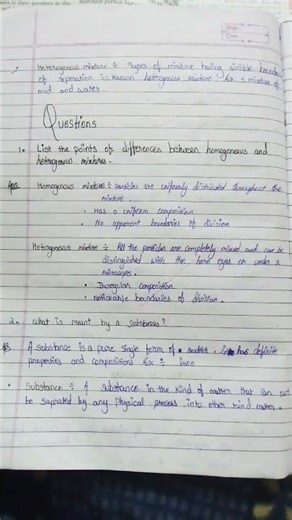 Heterogenous mixture ÷ Types of mixture having visible boundries
of sepration is known hetrogenous mixture Ex :- mixture of
mud and water
Questions
1. List the points of differences between homogeneous and
hetrogenous mixtures.
Ans Homogenous mixture ÷ Particles are uniformly distributed throughout the
mixture
• Has a uniform composition
• No apparent boundaries of division
Heterogenous mixture ÷ All the particles are completely mixed and can be
distinguished with the bare eyes or under a
microscope.
• Irregular composition
• Noticeable boundaries of division.
2. What is meant by a substance?
A substance is a pure single form of matter. has definite
properties and composition Ex ÷ Iron
• Substance ÷ A substance is the kind of matter that can not
be seprated by any physical process into other kind matter.